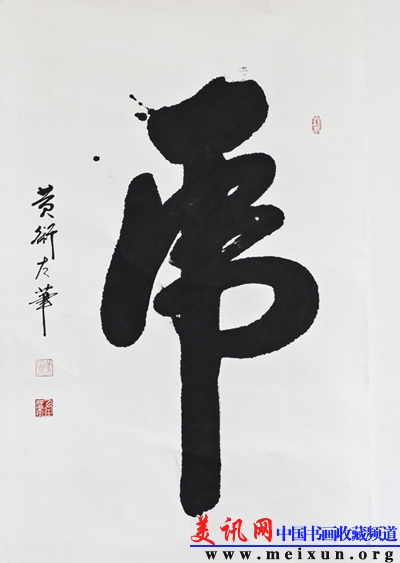 虎
黄衍左華
美讯网 中国书画收藏频道
www.meixun.org